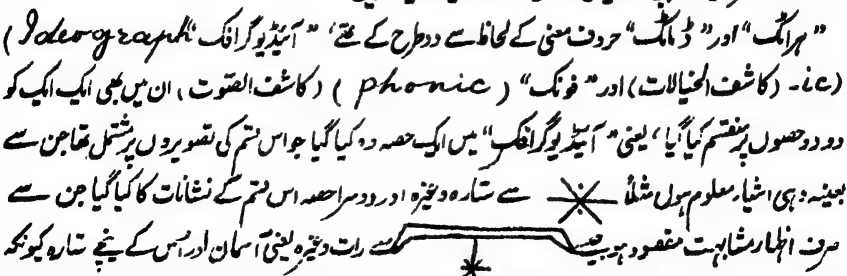 ” ہرانگ “ اور ” ڈمانگ “ حروف معنی کے لحاظ سے دو طرح کے تھے، ” آئیڈیوگرافک “ (Ideograph
-ic) (کاشف الخیالات) اور ” فونک “ (phonic) (کاشف الصوت، ان میں بھی ایک ایک کو
دو دو حصوں پر منقسم کیا گیا، یعنی ” آئیڈیوگرافکس “ میں ایک حصہ وہ کیا گیا جو اس قسم کی تصویروں پر مشتمل تھا جن سے
بعینہ وہی اشیاء معلوم ہوں مثلاً سے ستارہ وغیرہ اور دوسرا حصہ اس قسم کے نشانات کا کیا گیا جن سے
صرف اظہار مشابہت مقصود ہو جیسے سے رات وغیرہ یعنی آسمان اور اس کے نیچے ستارہ کیونکہ